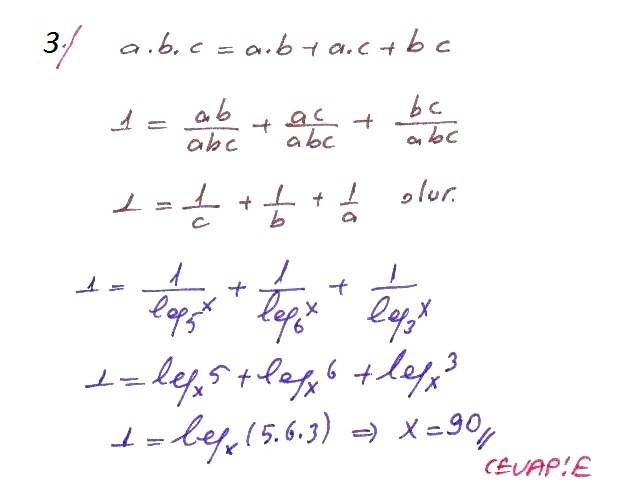 3./ a.b.c = a.b + a.c + bc
1 = ab/abc + ac/abc + bc/abc
1 = 1/c + 1/b + 1/a olur.
1 = 1/log₅x + 1/log₆x + 1/log₃x
1 = logₓ5 + logₓ6 + logₓ3
1 = logₓ(5.6.3) ⇒ x = 90//
CEVAP: E